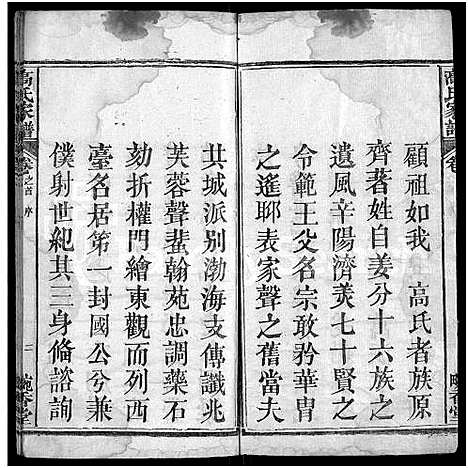 高氏家譜
顧祖如我　高氏者族原
齊著姓自姜分十六族之
遺風辛陽濟美七十賢之
令範王父名宗敢矜華胄
之遙耶表家聲之舊當夫
其城派別渤海支傳讖兆
芙蓉聲蜚翰苑忠調藥石
劾折權門繪東觀而列西
臺名居第一封國公兮兼
僕射世紀其三身備諮詢
高氏家譜
卷之首 序
二